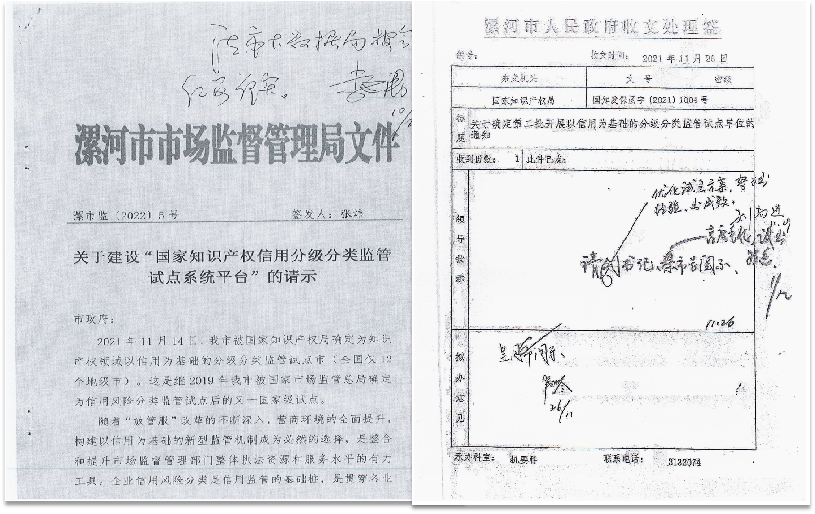 请市大数据局
漯河市市场监督管理局文件
漯市监〔2022〕5号
签发人：张
关于建设“国家知识产权信用分级分类监管
试点系统平台”的请示
市政府：
2021年11月14日，我市被国家知识产权局确定为知识
产权领域以信用为基础的分级分类监管试点市（全国仅12
个地级市）。这是继2019年我市被国家市场监管总局确定
为信用风险分类监管试点后的又一国家级试点。
随着“放管服”改革的不断深入，营商环境的全面提升，
构建以信用为基础的新型监管机制成为必然的选择，是整合
和提升市场监督管理部门整体执法资源和服务水平的有力
工具。企业信用风险分类是信用监管的基础桩，是贯穿各业
漯河市人民政府收文处理签
编号：
收文时间：2021年11月26日
来文机关
文 号
密级
国家知识产权局
国知发保函字〔2021〕1004号
标题
关于确定第二批开展以信用为基础的分级分类监管试点单位的
通知
收到份数：1
领导批示
优化试点方案，
请
书记、
市长阅示、
11.26
拟办意见
阅示、
26/11
承办科室：
机要科
联系电话：
3132074